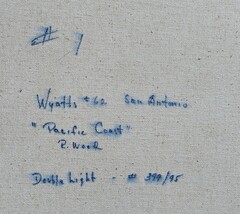 # 1
Wyatts #62 San Antonio
"Pacific Coast"
P. Wood
Double Light - # 399/95